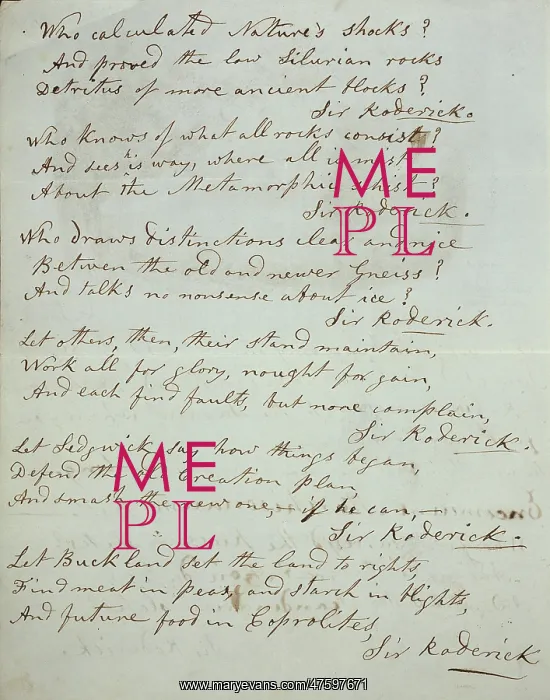 Who calculated Nature's shocks?
And proved the low Silurian rocks
Detritus of more ancient blocks?
Sir Roderick.
Who knows of what all rocks consist?
And sees his way, where all is mist
About the Metamorphic schist?
Sir Roderick.
Who draws distinctions clear and nice
Betwen the old and newer Gneiss?
And talks no nonsense about ice?
Sir Roderick.
Let others, then, their stand maintain,
Work all for glory, nought for gain,
And each find faults, but none complain,
Sir Roderick.
Let Sedgwick say how things began,
Defend the old Creation plan,
And smash the new one, – if he can, –
Sir Roderick.
Let Buckland set the land to rights,
Find meat in peas, and starch in blights,
And future food in Coprolites,
Sir Roderick
ME
PL
ME
PL
www.maryevans.com/47597671